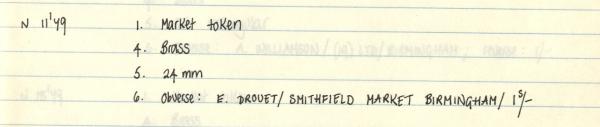 N 11'49 1. Market token
4. Brass
5. 24 mm
6. Obverse: E. DROUET/ SMITHFIELD MARKET BIRMINGHAM/ 1s/-